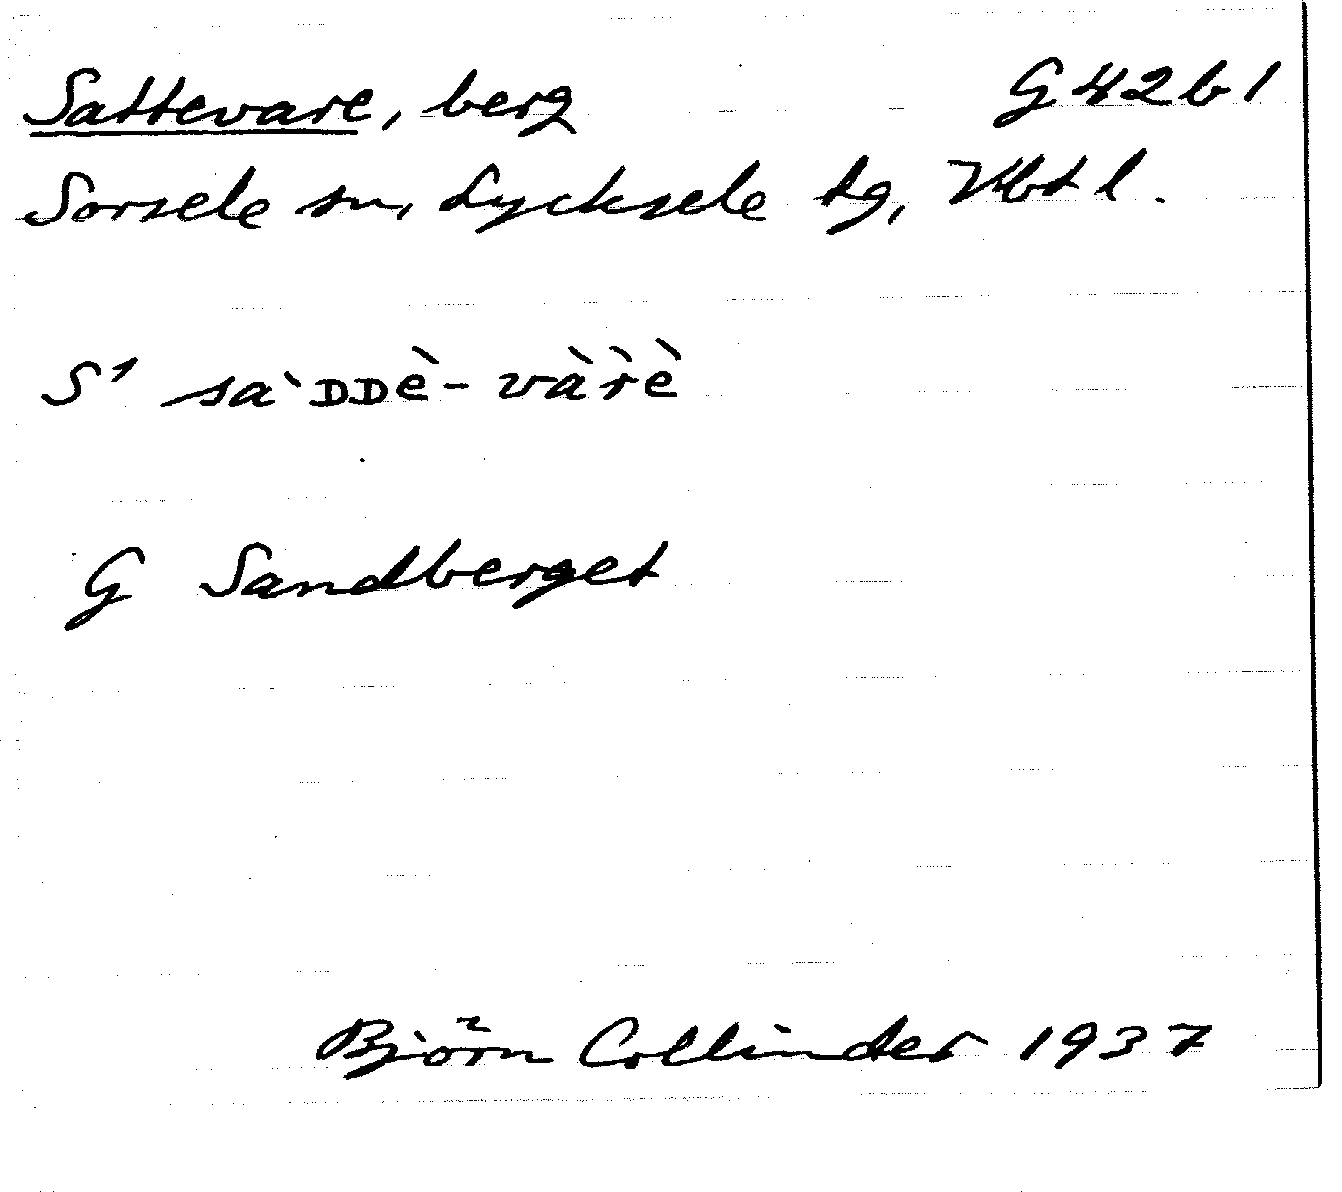 Sattevare, berg G42b1
Sorsele sn, Lycksele tg, Vbtl.
S' sa`DDè-vàr̀è
G Sandberget
Björn Collinder 1937